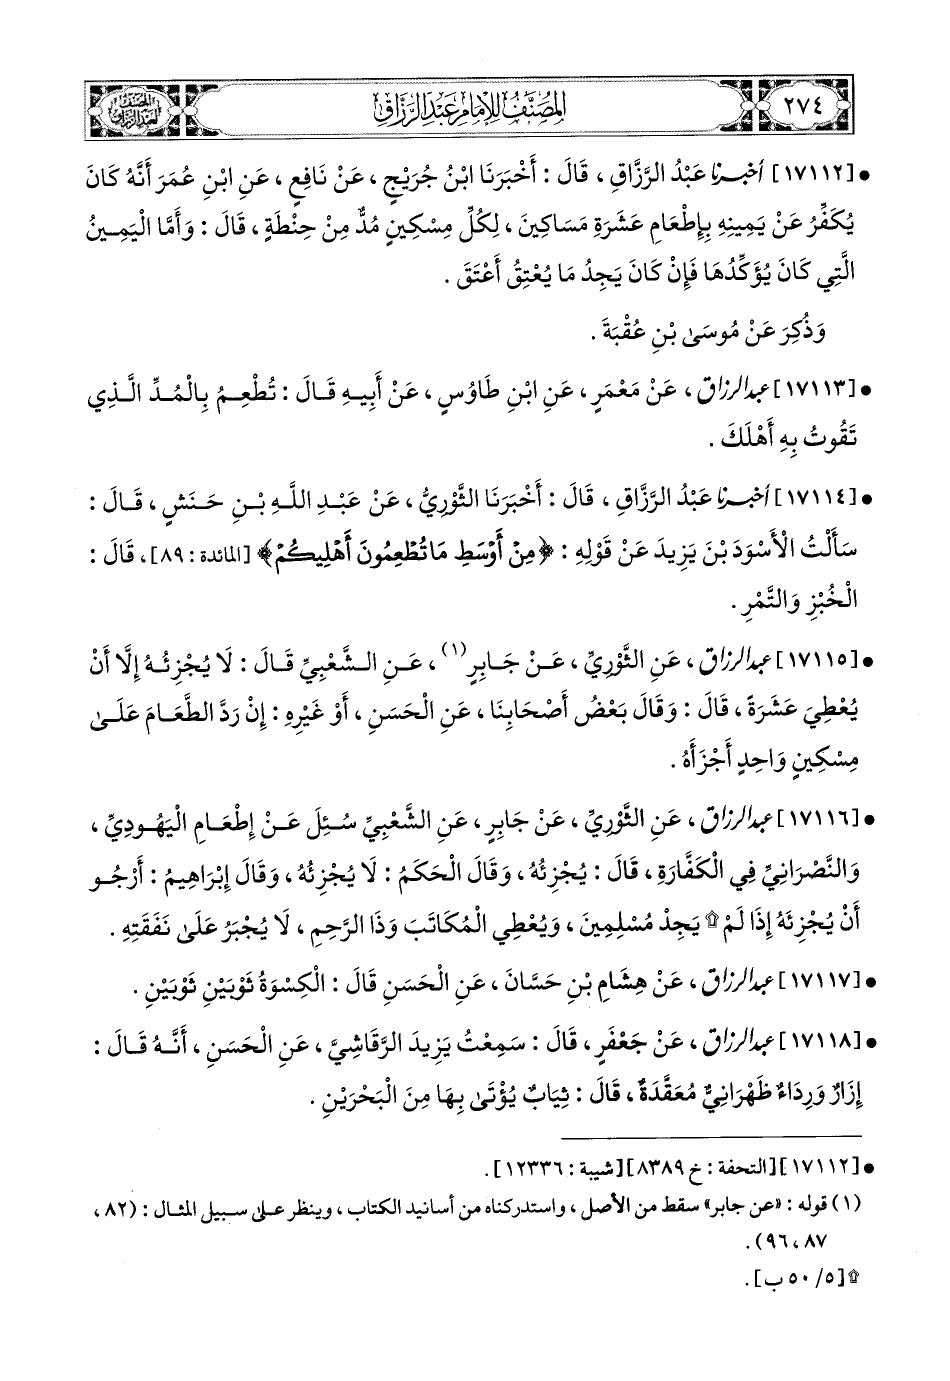 ٢٧٤
المصنف للإمام عبد الرزاق
• [١٧١١٢] أخبرنا عَبْدُ الرَّزَّاقِ، قَالَ: أَخْبَرَنَا ابْنُ جُرَيْجٍ، عَنْ نَافِعٍ، عَنِ ابْنِ عُمَرَ أَنَّهُ كَانَ
يُكَفِّرُ عَنْ يَمِينِهِ بِإِطْعَامِ عَشَرَةِ مَسَاكِينَ، لِكُلِّ مِسْكِينٍ مُدٌّ مِنْ حِنْطَةٍ، قَالَ: وَأَمَّا الْيَمِينُ
الَّتِي كَانَ يُؤَكِّدُهَا فَإِنْ كَانَ يَجِدُ مَا يُعْتِقُ أَعْتَقَ.
وَذُكِرَ عَنْ مُوسَى بْنِ عُقْبَةَ.
• [١٧١١٣] عبد الرزاق، عَنْ مَعْمَرٍ، عَنِ ابْنِ طَاوُسٍ، عَنْ أَبِيهِ قَالَ: تُطْعِمُ بِالْمُدِّ الَّذِي
تَقُوتُ بِهِ أَهْلَكَ.
• [١٧١١٤] أخبرنا عَبْدُ الرَّزَّاقِ، قَالَ: أَخْبَرَنَا الثَّوْرِيُّ، عَنْ عَبْدِ اللَّهِ بْنِ حَنَشٍ، قَالَ:
سَأَلْتُ الْأَسْوَدَ بْنَ يَزِيدَ عَنْ قَوْلِهِ: ﴿مِنْ أَوْسَطِ مَا تُطْعِمُونَ أَهْلِيكُمْ﴾ [المائدة: ٨٩]، قَالَ:
الْخُبْزِ وَالتَّمْرِ.
• [١٧١١٥] عبد الرزاق، عَنِ الثَّوْرِيِّ، عَنْ جَابِرٍ(١)، عَنِ الشَّعْبِيِّ قَالَ: لَا يُجْزِئُهُ إِلَّا أَنْ
يُعْطِيَ عَشَرَةً، قَالَ: وَقَالَ بَعْضُ أَصْحَابِنَا، عَنِ الْحَسَنِ، أَوْ غَيْرِهِ: إِنْ رَدَّ الطَّعَامَ عَلَى
مِسْكِينٍ وَاحِدٍ أَجْزَأَهُ.
• [١٧١١٦] عبد الرزاق، عَنِ الثَّوْرِيِّ، عَنْ جَابِرٍ، عَنِ الشَّعْبِيِّ سُئِلَ عَنْ إِطْعَامِ الْيَهُودِيِّ،
وَالنَّصْرَانِيِّ فِي الْكَفَّارَةِ، قَالَ: يُجْزِئُهُ، وَقَالَ الْحَكَمُ: لَا يُجْزِئُهُ، وَقَالَ إِبْرَاهِيمُ: أَرْجُو
أَنْ يُجْزِئَهُ إِذَا لَمْ ۩ يَجِدْ مُسْلِمِينَ، وَيُعْطِي الْمُكَاتَبَ وَذَا الرَّحِمِ، لَا يُجْبَرُ عَلَى نَفَقَتِهِ.
• [١٧١١٧] عبد الرزاق، عَنْ هِشَامِ بْنِ حَسَّانَ، عَنِ الْحَسَنِ قَالَ: الْكِسْوَةُ ثَوْبَيْنِ ثَوْبَيْنِ.
• [١٧١١٨] عبد الرزاق، عَنْ جَعْفَرٍ، قَالَ: سَمِعْتُ يَزِيدَ الرَّقَاشِيَّ، عَنِ الْحَسَنِ، أَنَّهُ قَالَ:
إِزَارٌ وَرِدَاءٌ ظَهْرَانِيٌّ مُعَقَّدَةٌ، قَالَ: ثِيَابٌ يُؤْتَى بِهَا مِنَ الْبَحْرَيْنِ.
• [١٧١١٢] [التحفة: خ ٨٣٨٩] [شيبة: ١٢٣٣٦].
(١) قوله: «عن جابر» سقط من الأصل، واستدركناه من أسانيد الكتاب، وينظر على سبيل المثال: (٨٢،
٨٧، ٩٦).
۩ [٥/ ٥٠ ب].